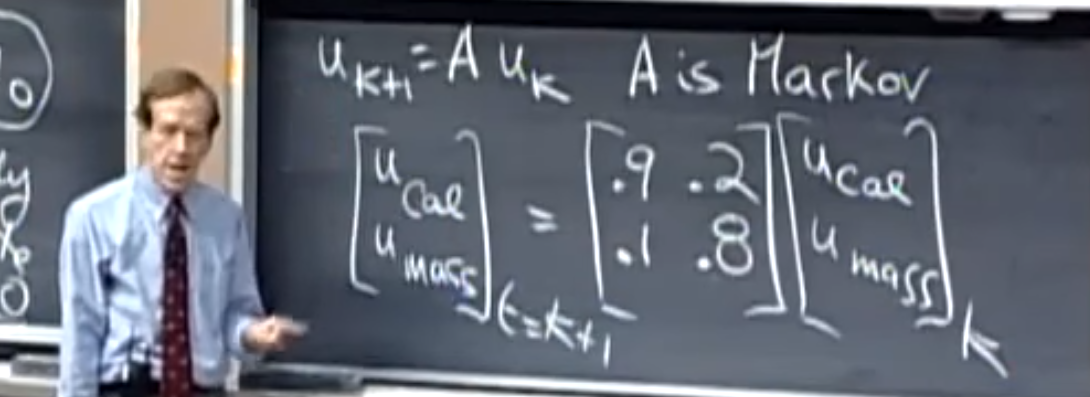 u_{k+1} = A u_k   A is Markov
[u_Cal; u_mass]_{t=k+1} = [.9 .2; .1 .8] [u_Cal; u_mass]_k